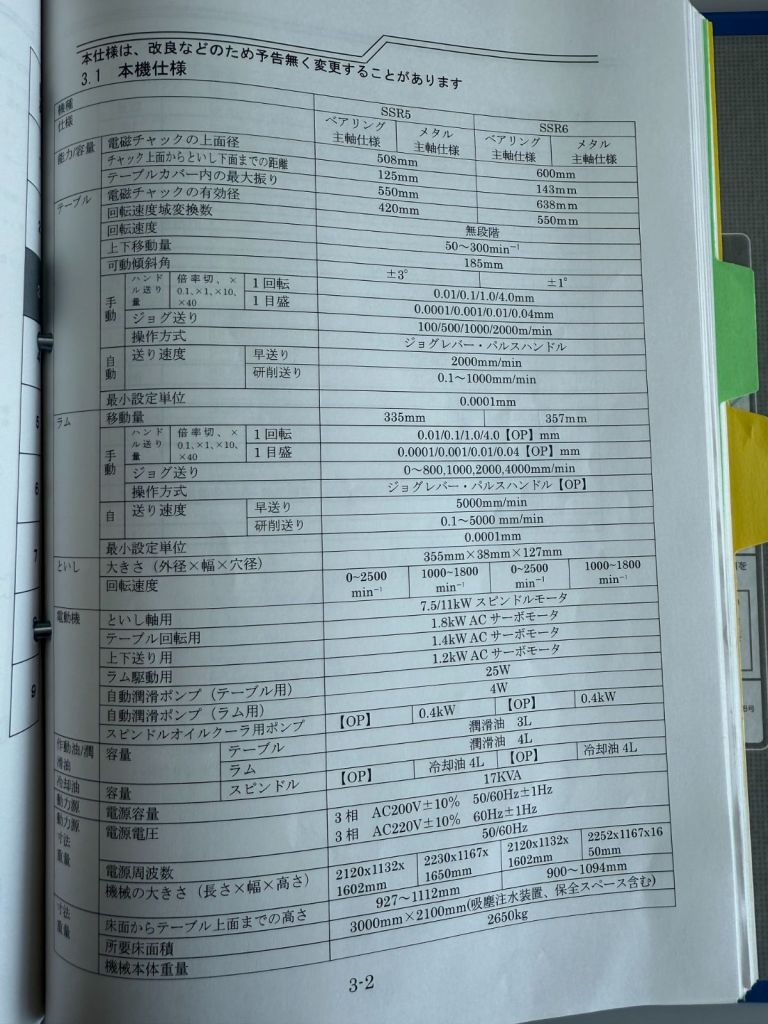 本仕様は、改良などのため予告無く変更することがあります
3.1 本機仕様
機種 SSR5 SSR6
仕様 ベアリング主軸仕様 メタル主軸仕様 ベアリング主軸仕様 メタル主軸仕様
能力/容量 電磁チャックの上面径 508mm 600mm
チャック上面からといし下面までの距離 125mm 143mm
テーブルカバー内の最大振り 550mm 638mm
テーブル 電磁チャックの有効径 420mm 550mm
回転速度域変換数 無段階
回転速度 50～300min⁻¹
上下移動量 185mm
可動傾斜角 ±3° ±1°
手動 ハンドル送り量 倍率切、×0.1、×1、×10、×40 1回転 0.01/0.1/1.0/4.0mm
1目盛 0.0001/0.001/0.01/0.04mm
ジョグ送り 100/500/1000/2000m/min
操作方式 ジョグレバー・パルスハンドル
自動 送り速度 早送り 2000mm/min
研削送り 0.1～1000mm/min
最小設定単位 0.0001mm
ラム 移動量 335mm 357mm
手動 ハンドル送り量 倍率切、×0.1、×1、×10、×40 1回転 0.01/0.1/1.0/4.0【OP】mm
1目盛 0.0001/0.001/0.01/0.04【OP】mm
ジョグ送り 0～800,1000,2000,4000mm/min
操作方式 ジョグレバー・パルスハンドル【OP】
自 送り速度 早送り 5000mm/min
研削送り 0.1～5000 mm/min
最小設定単位 0.0001mm
といし 大きさ（外径×幅×穴径） 355mm×38mm×127mm
回転速度 0~2500 min⁻¹ 1000~1800 min⁻¹ 0~2500 min⁻¹ 1000~1800 min⁻¹
電動機 といし軸用 7.5/11kW スピンドルモータ
テーブル回転用 1.8kW AC サーボモータ
上下送り用 1.4kW AC サーボモータ
ラム駆動用 1.2kW AC サーボモータ
自動潤滑ポンプ（テーブル用） 25W
自動潤滑ポンプ（ラム用） 4W
スピンドルオイルクーラ用ポンプ 【OP】 0.4kW 【OP】 0.4kW
作動油/潤滑油 容量 テーブル 潤滑油 3L
ラム 潤滑油 4L
冷却油 容量 スピンドル 【OP】 冷却油 4L 【OP】 冷却油 4L
動力源 電源容量 17KVA
動力源 電源電圧 3相 AC200V±10% 50/60Hz±1Hz
3相 AC220V±10% 60Hz±1Hz
電源周波数 50/60Hz
寸法重量 機械の大きさ（長さ×幅×高さ） 2120x1132x1602mm 2230x1167x1650mm 2120x1132x1602mm 2252x1167x1650mm
寸法重量 床面からテーブル上面までの高さ 927～1112mm 900～1094mm
所要床面積 3000mm×2100mm(吸塵注水装置、保全スペース含む)
機械本体重量 2650kg
3-2
5
6
7
8
9